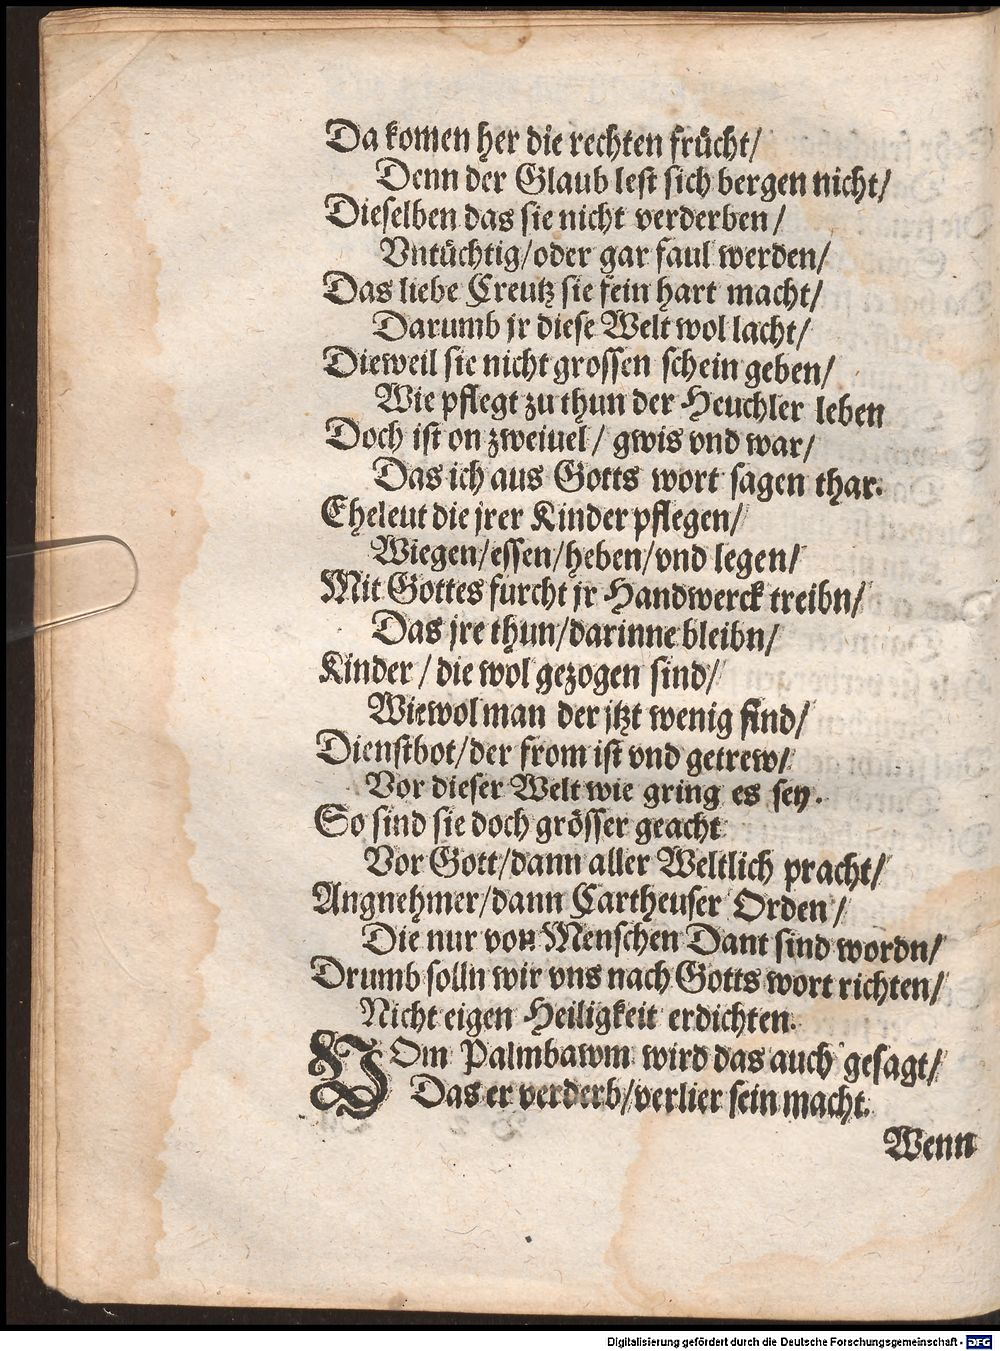 Da komen her die rechten frücht/
Denn der Glaub lest sich bergen nicht/
Dieselben das sie nicht verderben/
Vntüchtig/oder gar faul werden/
Das liebe Creutz sie fein hart macht/
Darumb jr diese Welt wol lacht/
Dieweil sie nicht grossen schein geben/
Wie pflegt zu thun der Heuchler leben
Doch ist on zweiuel/ gwis vnd war/
Das ich aus Gotts wort sagen thar.
Eheleut die jrer Kinder pflegen/
Wiegen/essen/heben/vnd legen/
Mit Gottes furcht jr Handwerck treibn/
Das jre thun/darinne bleibn/
Kinder/ die wol gezogen sind/
Wiewol man der jtzt wenig find/
Dienstbot/der from ist vnd getrew/
Vor dieser Welt wie gring es sey.
So sind sie doch grösser geacht
Vor Gott/dann aller Weltlich pracht/
Angnehmer/dann Cartheuser Orden/
Die nur von Menschen Dant sind wordn/
Drumb solln wir vns nach Gotts wort richten/
Nicht eigen Heiligkeit erdichten.
VOm Palmbawm wird das auch gesagt/
Das er verderb/verlier sein macht.
Wenn
Digitalisierung gefördert durch die Deutsche Forschungsgemeinschaft - DFG